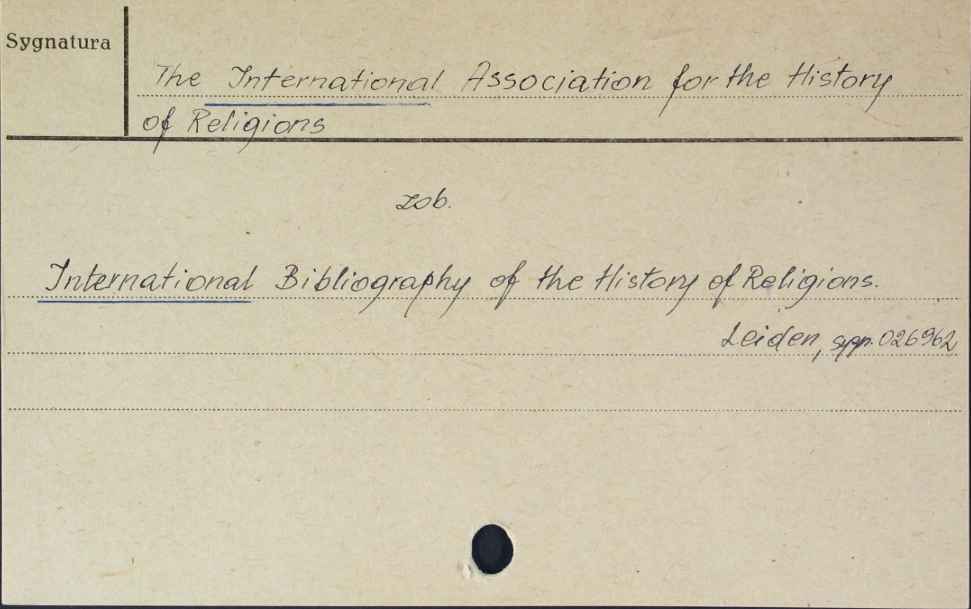 Sygnatura
The International Association for the History
of Religions
zob.
International Bibliography of the History of Religions.
Leiden, sygn. 026962